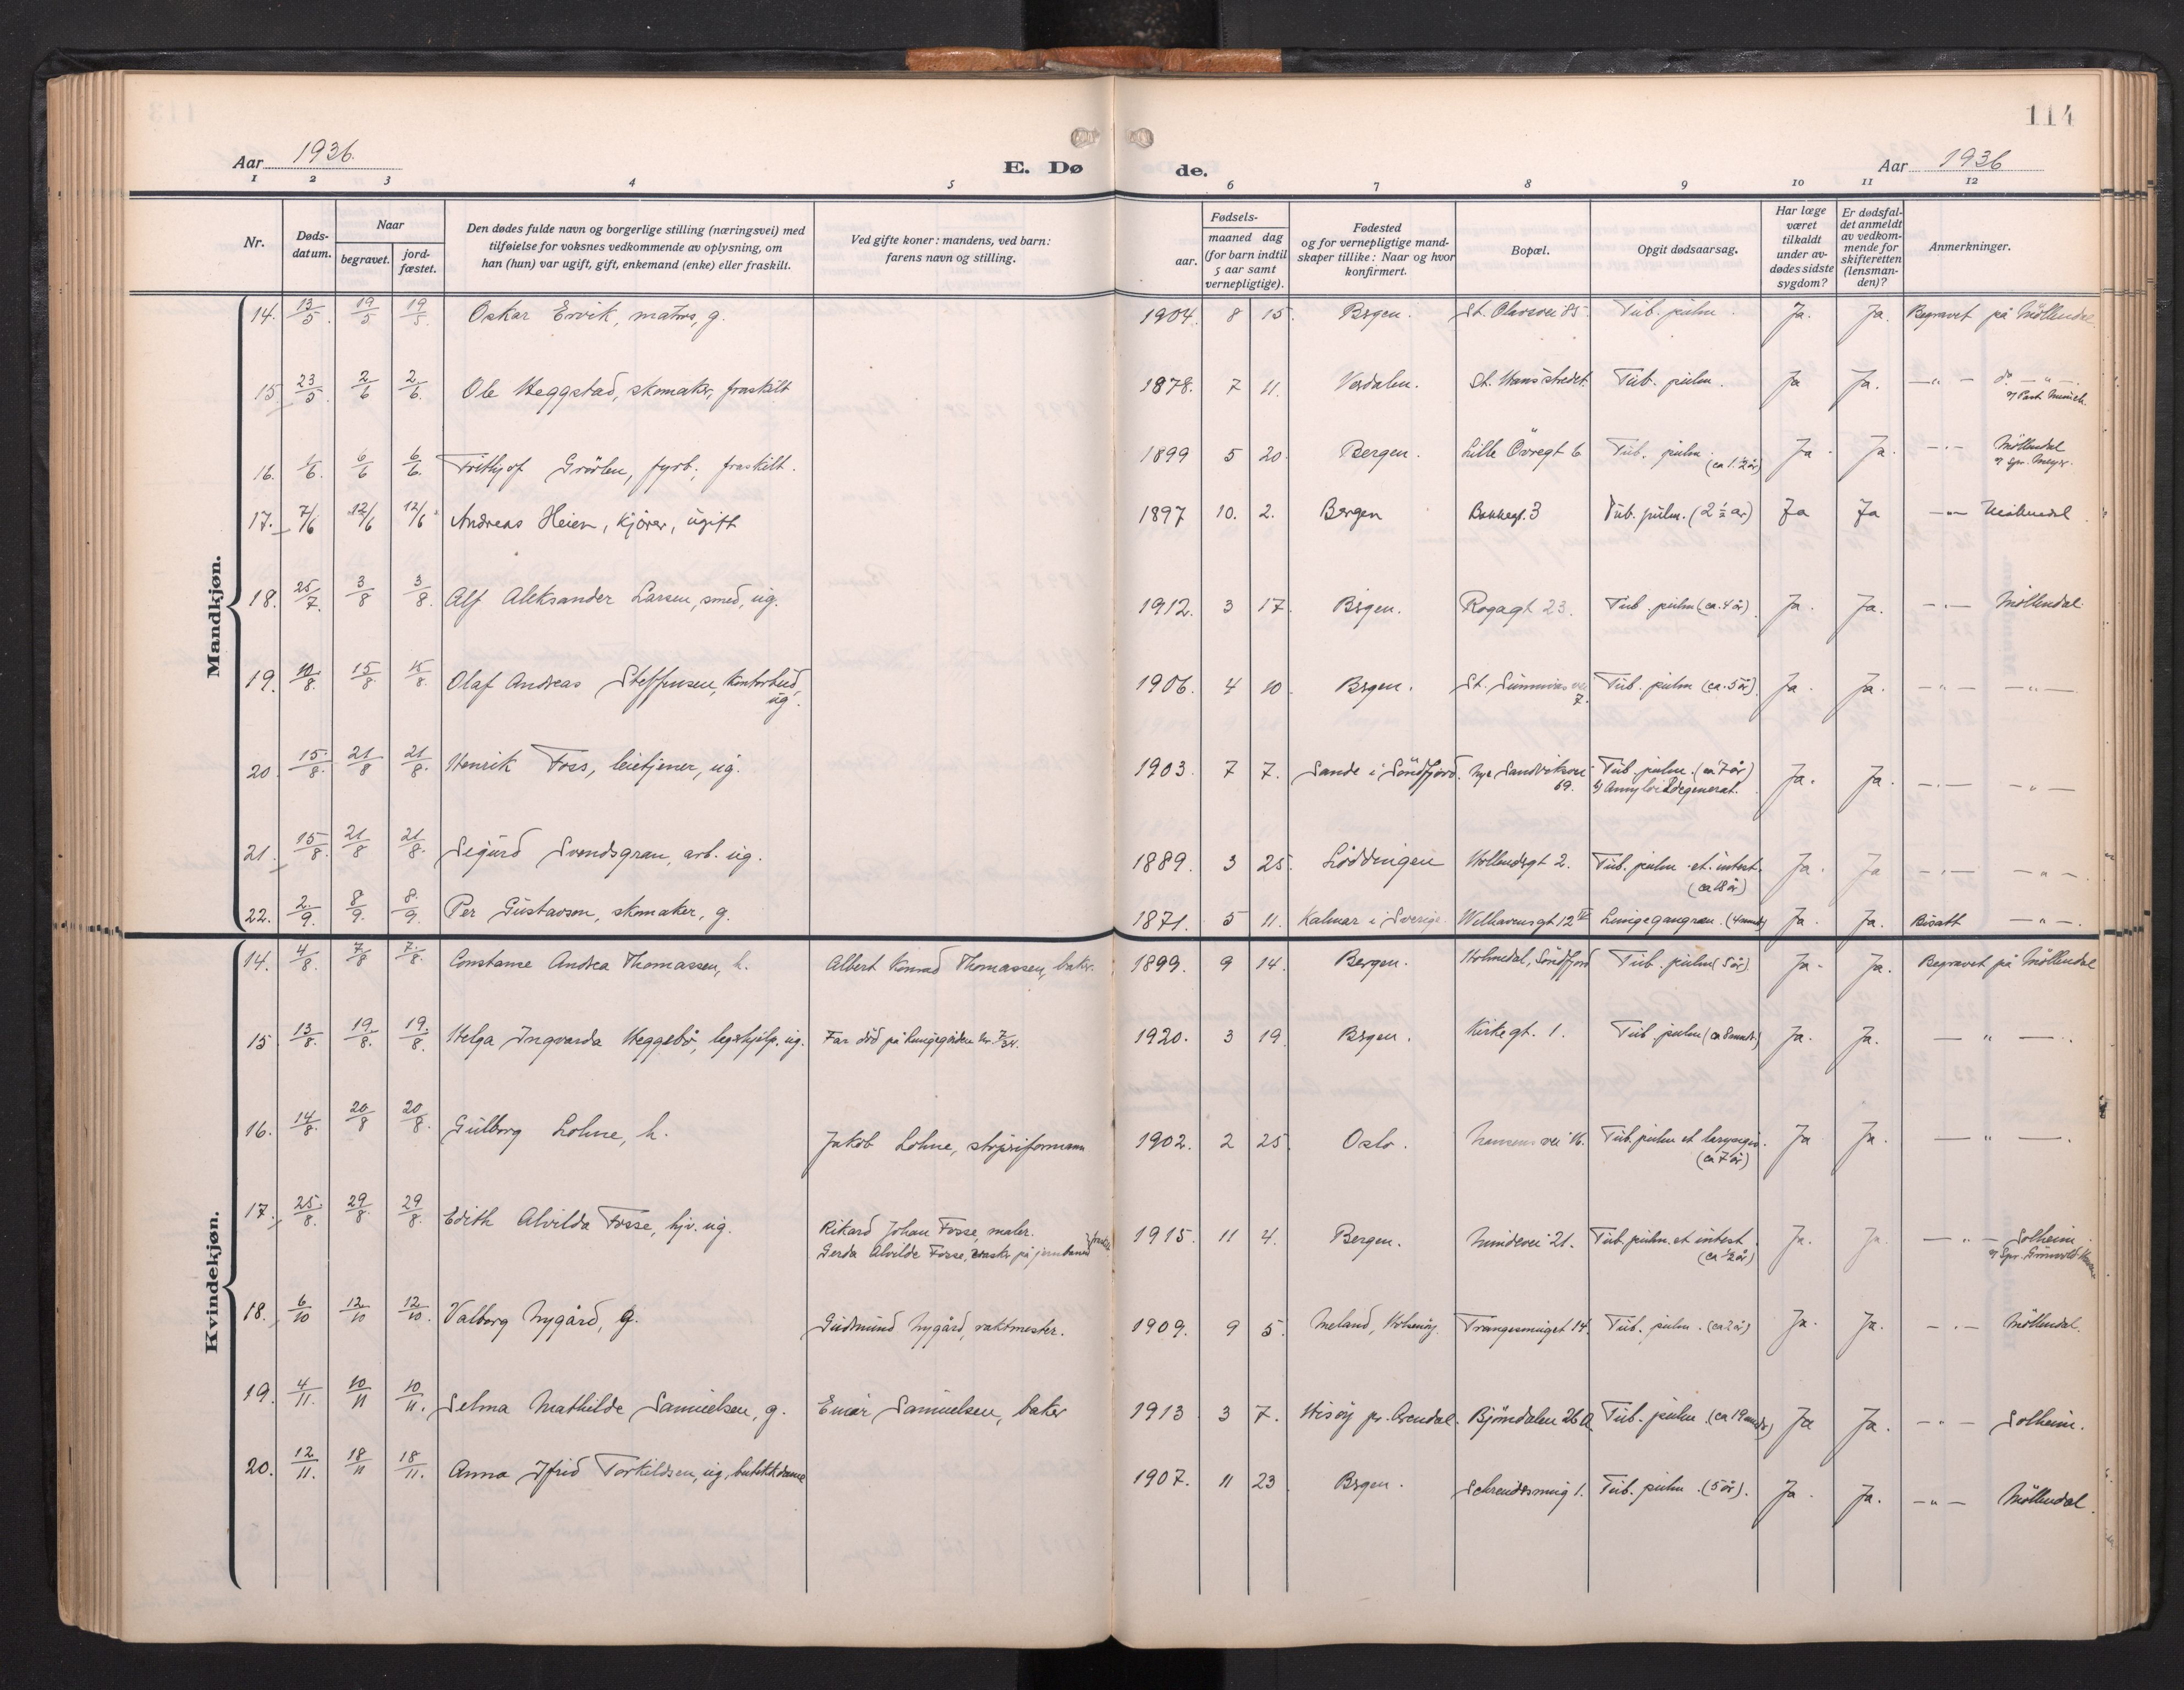 114
Aar 1936.
E. Dø
de.
Aar 1936
1 2 3 4 5 6 7 8 9 10 11 12
Nr. Døds-datum. Naar begravet. jord-fæstet. Den dødes fulde navn og borgerlige stilling (næringsvei) med tilføielse for voksnes vedkommende av oplysning, om han (hun) var ugift, gift, enkemand (enke) eller fraskilt. Ved gifte koner: mandens, ved barn: farens navn og stilling. Fødsels- aar. maaned dag (for barn indtil 5 aar samt vernepligtige). Fødested og for vernepligtige mand-skaper tillike: Naar og hvor konfirmert. Bopæl. Opgit dødsaarsag. Har læge været tilkaldt under av-dødes sidste sygdom? Er dødsfal-det anmeldt av vedkom-mende for skifteretten (lensman-den)? Anmerkninger.
Mandkjøn.
14. 13/5 19/5 19/5. Oskar Ervik, matros, g. 1904. 8 15. Bergen. St. Olavsvei 85. Tub. pulm. Ja. Ja. Begravet på Möllendal.
15. 23/5 2/6 2/6. Ole Heggstad, skomaker, fraskilt 1878. 7 11. Verdalen. St. Hansstredet. Tub. pulm. Ja Ja. —"— do. —"—
v/ Past. Munich.
16. 1/6. 6/6 6/6. Frithjof Grøvlen, fyrb., fraskilt. 1899 5 20. Bergen. Lille Övregt 6 Tub. pulm. (ca 1 1/2 år) Ja. Ja. —"— Möllendal
v/ Spr. Meyer.
17. 7/6 12/6 12/6 Andreas Heien, kjører, ugift 1897 10. 2. Bergen Bakkegt. 3 Tub. pulm. (2 1/2 år) Ja Ja —"— Möllendal
18. 25/7. 3/8 3/8. Alf Aleksander Larsen, smed, ug. 1912. 3 17. Bergen. Rogagt 23. Tub. pulm (ca. 4 år). Ja. Ja. —"— Möllendal.
19. 10/8. 15/8 15/8. Olaf Andreas Steffensen, kontorbud, ug. 1906. 4 10. Bergen. St. Sunnivas vei 7. Tub. pulm (ca. 5 år). Ja. Ja. —"— —"—
20. 15/8. 21/8 21/8. Henrik Foss, leietjener, ug. 1903. 7 7. Sande i Söndfjord. Nye Sandviksvei 69. Tub. pulm. (ca 7 år)
Amyloiddegenerat. Ja. Ja. —"— —"—
21. 15/8. 21/8 21/8. Sigurd Svendsgran, arb. ug. 1889. 3 25. Löddingen Hollendergt 2. Tub. pulm. et. intest. (ca 18 år) Ja. Ja —"— —"—
22. 2/9. 8/9. 8/9. Per Gustavson, skomaker, g. 1871. 5 11. Kalmar i Sverige. Welhavensgt 12 IV Lungegangræn. (4 mndr) Ja. Ja. Bisatt —"—
Kvindekjøn.
14. 4/8. 7/8 7/8. Constanse Andrea Thomassen, h. Albert Konrad Thomassen, baker. 1899. 9 14. Bergen. Holmedal, Söndfjord Tub. pulm (5 år) Ja. Ja. Begravet på Möllendal
15 13/8. 19/8. 19/8. Helga Ingvarda Heggebø, legehjelp. ug. Far död på Lungegården 1920. 3 19. Bergen. Kirkegt. 1. Tub. pulm (ca 8 mndr.) Ja. Ja. — " —
16. 14/8. 20/8 20/8. Gulborg Lohne, h. Jakob Lohne, 1902. 2 25. Oslo. Nansens vei 16. Tub. pulm et laryngis. (ca 7 år) Ja Ja. — " —
17. 25/8. 29/8. 29/8. Edith Alvilda Fosse, hjv. ug. Rikard Johan Fosse, maler.
Gerda Alvilde Fosse, på jernbanen 1915. 11 4. Bergen. 21. Tub. pulm. et intest. (ca 1/2 år) Ja. Ja. —"— Solheim.
18. 6/10 12/10 12/10. Valborg Nygård, g. Gudmund Nygård, vaktmester. 1909. 9 5. Meland, Holsenöy. Trangesmuget 14. Tub. pulm. (ca 2 år) Ja. Ja. —"— Möllendal.
19. 4/11. 10/11 10/11. Selma Mathilde Samuelsen, g. Einar Samuelsen, baker 1913 3 7. Hisöy pr. Arendal. Bjöndalen 26 a Tub. pulm. (ca 19 mndr) Ja Ja. —"— Solheim.
20. 12/11. 18/11 18/11. Anna Ifrid Torkildsen, ug, butikkdame 1907. 11 23. Bergen. 1. Tub. pulm. (5 år). Ja. Ja. —"— Möllendal.